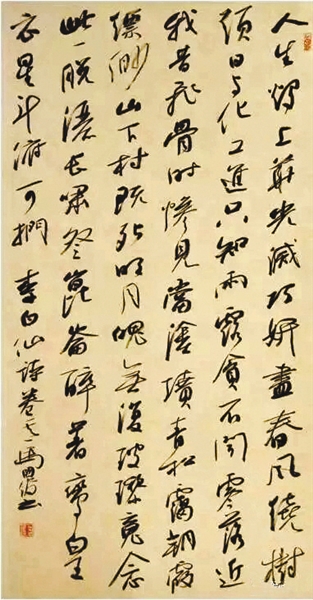 人生燭上華光滅巧妍盡春風繞樹
頭日与化工進只知雨露貪不聞零落近
我昔飛骨時慘見當塗墳青松靄朝霞
縹緲山下村既死明月魄無復玻瓈魂念
此一脫灑長嘯祭崑崙醉著鸞皇
衣星斗俯可捫 李白仙詩卷